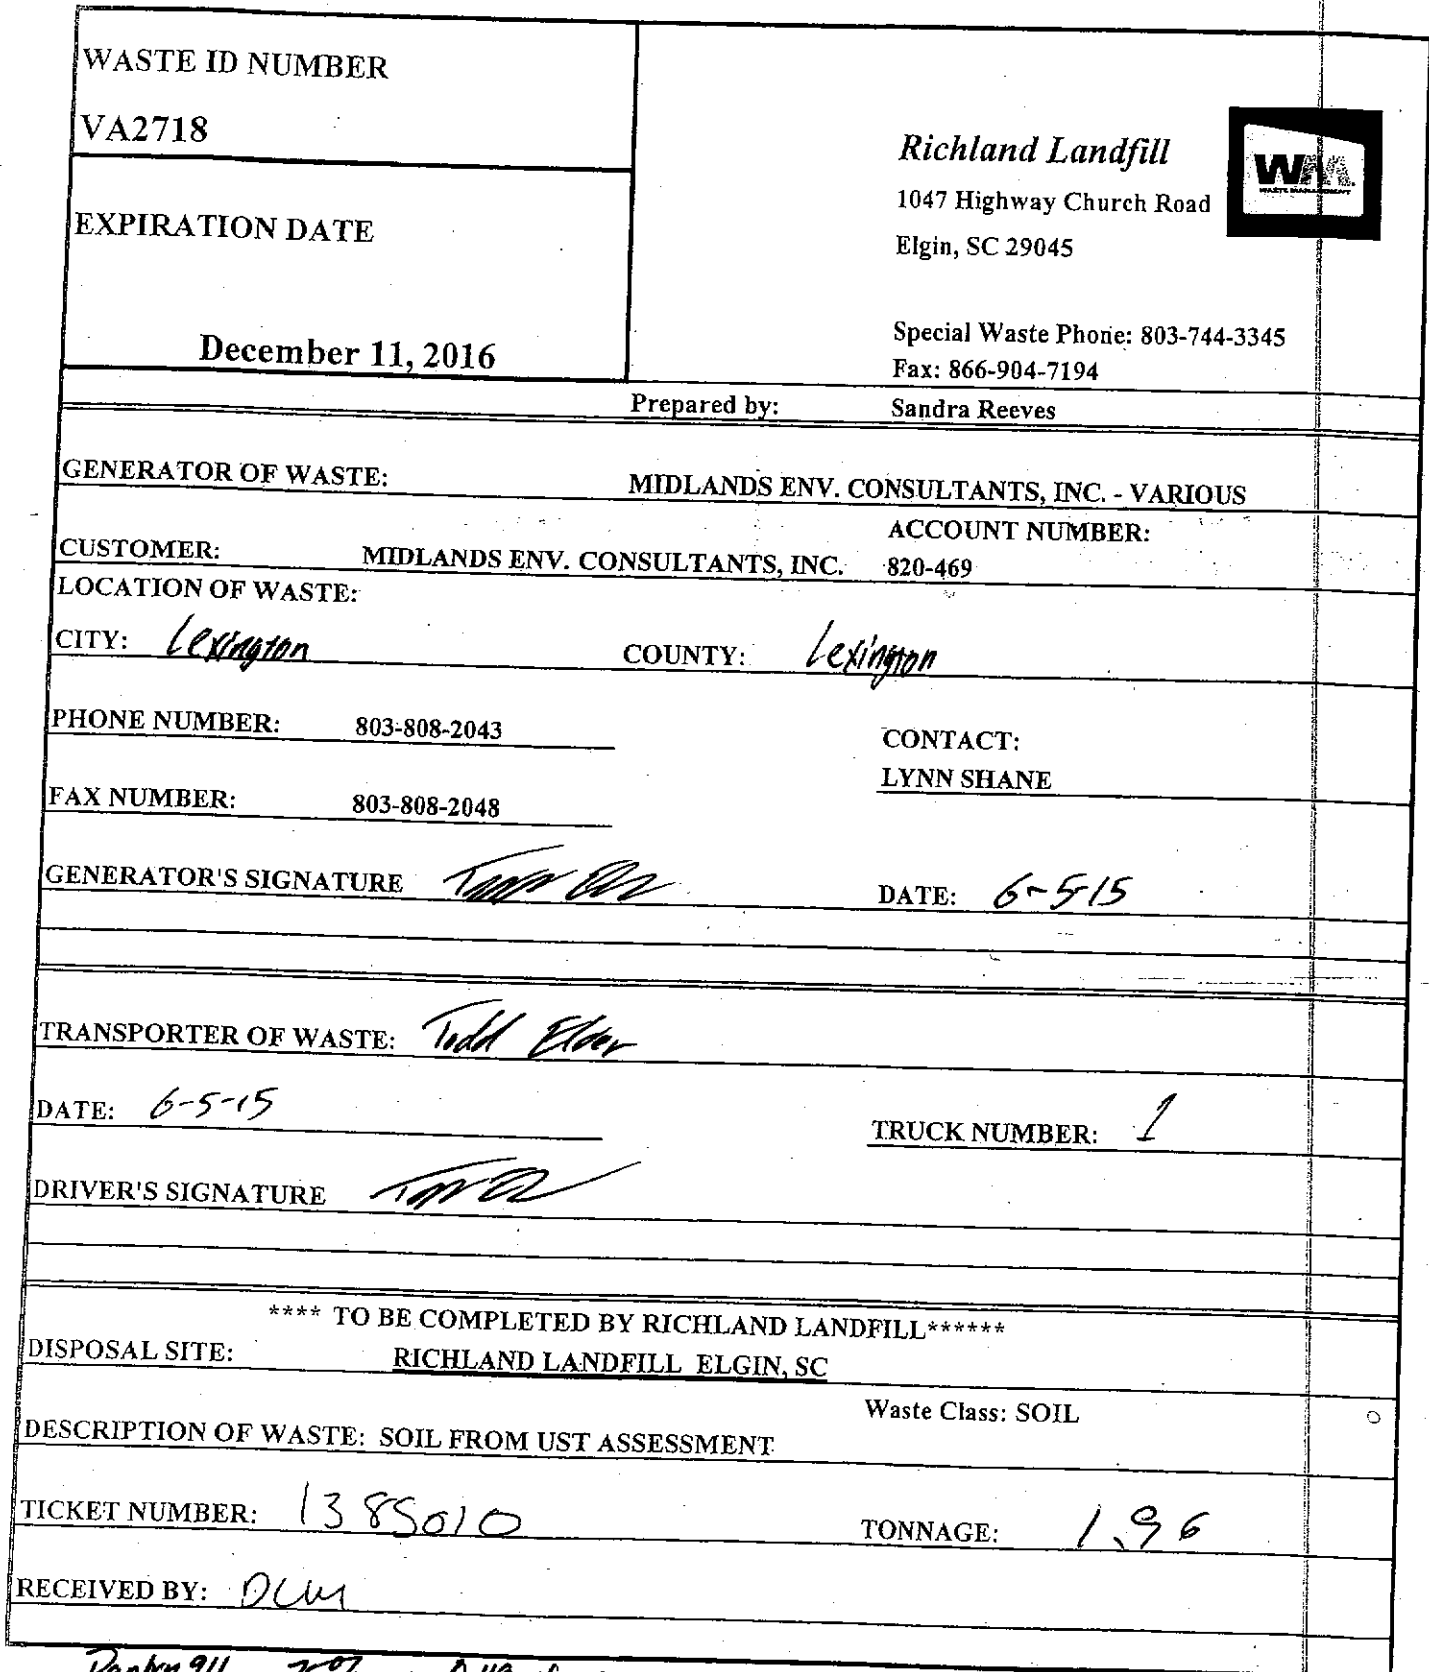 WASTE ID NUMBER
VA2718
EXPIRATION DATE
December 11, 2016
Richland Landfill
WM
WASTE MANAGEMENT
1047 Highway Church Road
Elgin, SC 29045
Special Waste Phone: 803-744-3345
Fax: 866-904-7194
Prepared by: Sandra Reeves
GENERATOR OF WASTE: MIDLANDS ENV. CONSULTANTS, INC. - VARIOUS
ACCOUNT NUMBER:
CUSTOMER: MIDLANDS ENV. CONSULTANTS, INC. 820-469
LOCATION OF WASTE:
CITY: Lexington COUNTY: Lexington
PHONE NUMBER: 803-808-2043
CONTACT:
LYNN SHANE
FAX NUMBER: 803-808-2048
GENERATOR'S SIGNATURE DATE: 6-5-15
TRANSPORTER OF WASTE: Todd Elder
DATE: 6-5-15 TRUCK NUMBER: 1
DRIVER'S SIGNATURE
**** TO BE COMPLETED BY RICHLAND LANDFILL******
DISPOSAL SITE: RICHLAND LANDFILL ELGIN, SC
Waste Class: SOIL
DESCRIPTION OF WASTE: SOIL FROM UST ASSESSMENT
TICKET NUMBER: 1385010 TONNAGE: 1.96
RECEIVED BY: DCM